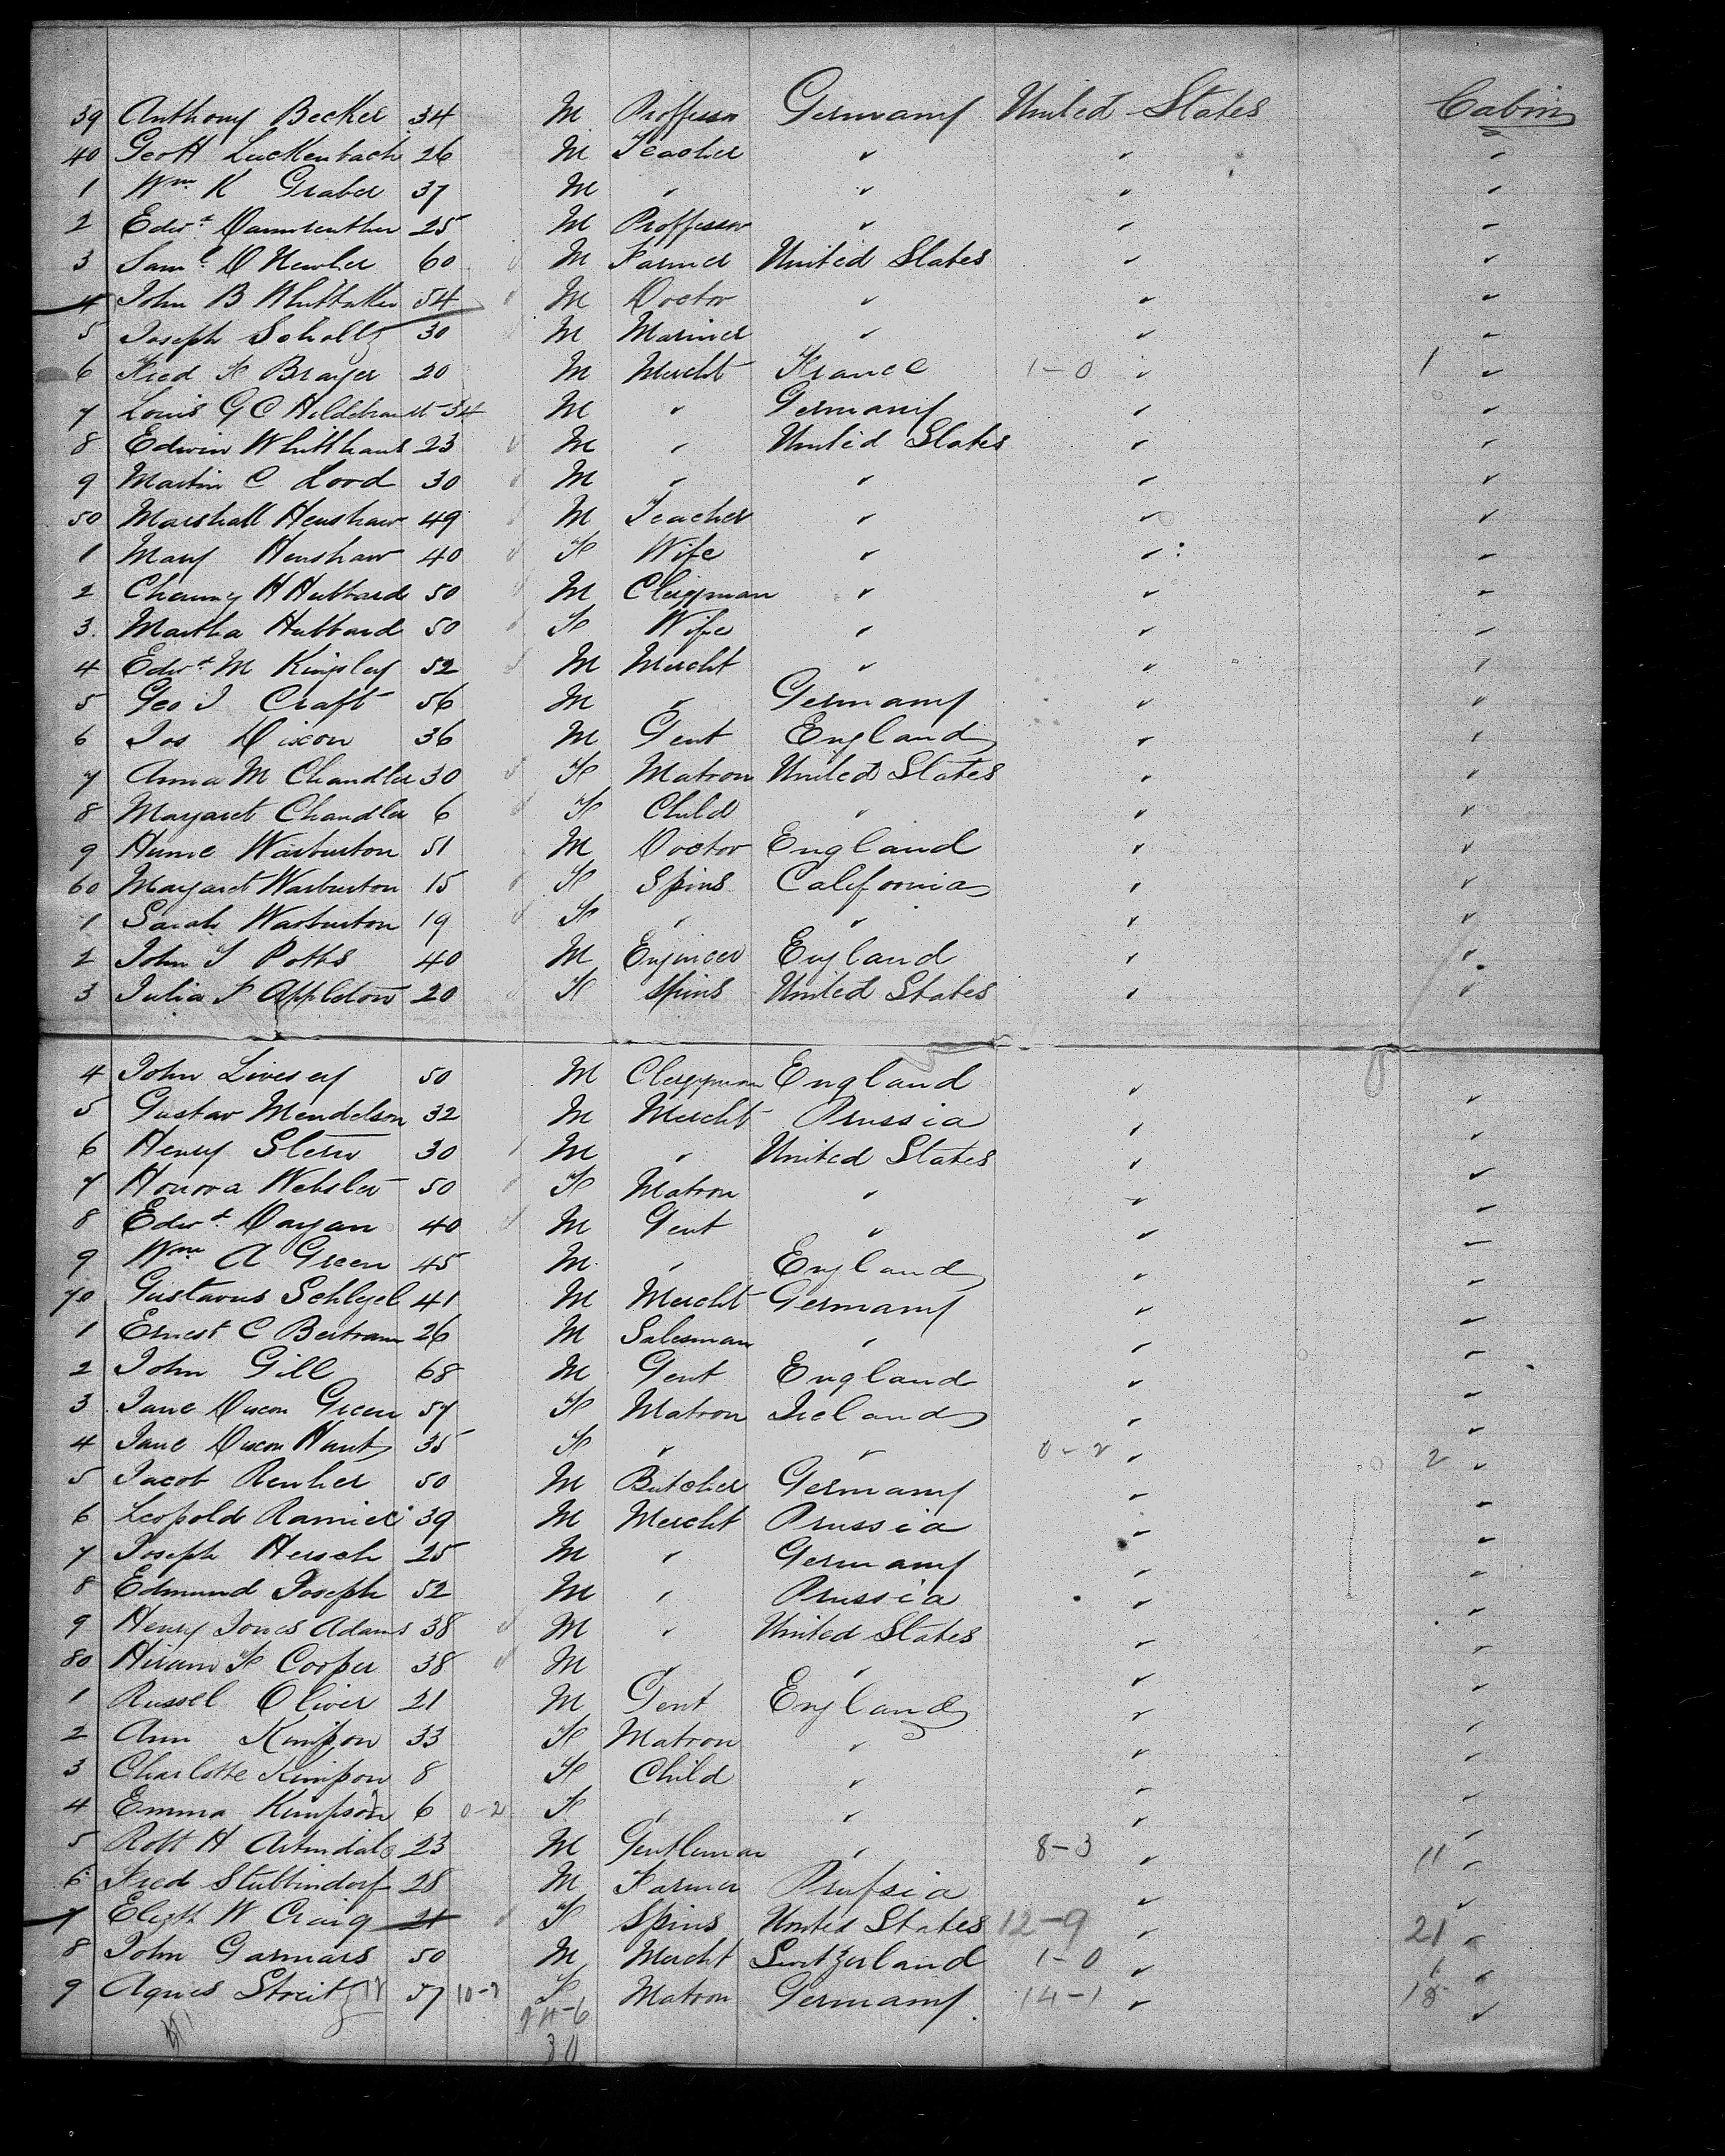 39 Anthony Becker 34 M Proffessor Germany United States Cabin
40 Geo H Luckenbach 26 M Teacher " " "
1 Wm K Graber 37 M " " " "
2 Edwd 25 M Proffessor " " "
3 Saml D 60 M Farmer United States " "
4 John B Whittaker 54 M Doctor " " "
5 Joseph Scholtz 30 M Mariner " " "
6 Fred F Brayer 20 M Mercht France 1-0 " 1 "
7 Louis G C Hildebrandt 34 M " Germany " "
8 Edwin 23 M " United States " "
9 Martin C Lord 30 M " " " "
50 Marshall Henshaw 49 M Teacher " " "
1 Mary Henshaw 40 F Wife " " "
2 Chauncy H Hubbard 50 M Clergyman " " "
3. Martha Hubbard 50 F Wife " " "
4 Edwd M Kingsley 52 M Mercht " " "
5 Geo I Craft 56 M " Germany " "
6 Jos Dixon 36 M Gent England " "
7 Anna M Chandler 30 F Matron United States " "
8 Margaret Chandler 6 F Child " " "
9 Hume Warburton 51 M Doctor England " "
60 Margaret Warburton 15 F Spins California " "
1 Sarah Warburton 19 F " " " "
2 John S Potts 40 M Engineer England " "
3 Julia F Appleton 20 F Spins United States " "
4 John Livesey 50 M Clergyman England " "
5 Gustav Mendelson 32 M Mercht Prussia " "
6 Henry Stern 30 M " United States " "
7 Honora Webster 50 F Matron " " "
8 Edwd Dayan 40 M Gent " " "
9 Wm A Green 45 M " England " "
70 Gustavus Schlegel 41 M Mercht Germany " "
1 Ernest C Bertram 26 M Salesman " " "
2 John Gill 68 M Gent England " "
3 Jane Dixon Green 57 F Matron Ireland " "
4 Jane Dixon Hunt 35 F " " 0-2 " 2 "
5 Jacob 50 M Butcher Germany " "
6 Leopold 39 M Mercht Prussia " "
7 Joseph Hersch 25 M " Germany " "
8 Edmund Joseph 52 M " Prussia " "
9 Henry Jones Adams 38 M " United States " "
80 Hiram F Cooper 38 M " " " "
1 Russel Oliver 21 M Gent England " "
2 Ann Kimpson 33 F Matron " " "
3 Charlotte Kimpson 8 F Child " " "
4 Emma Kimpson 6 0-2 F " " " "
5 Robt H Artindale 23 M Gentleman " 8-3 " 11 "
6 Fred Stubbindorf 28 M Farmer Prussia " "
7 Elizth W Craig 21 F Spins United States 12-9 " 21 "
8 John Garmars 50 M Mercht Switzerland 1-0 " 1 "
9 Agnes Streitz 57 F Matron Germany 14-1 " 15 "
30